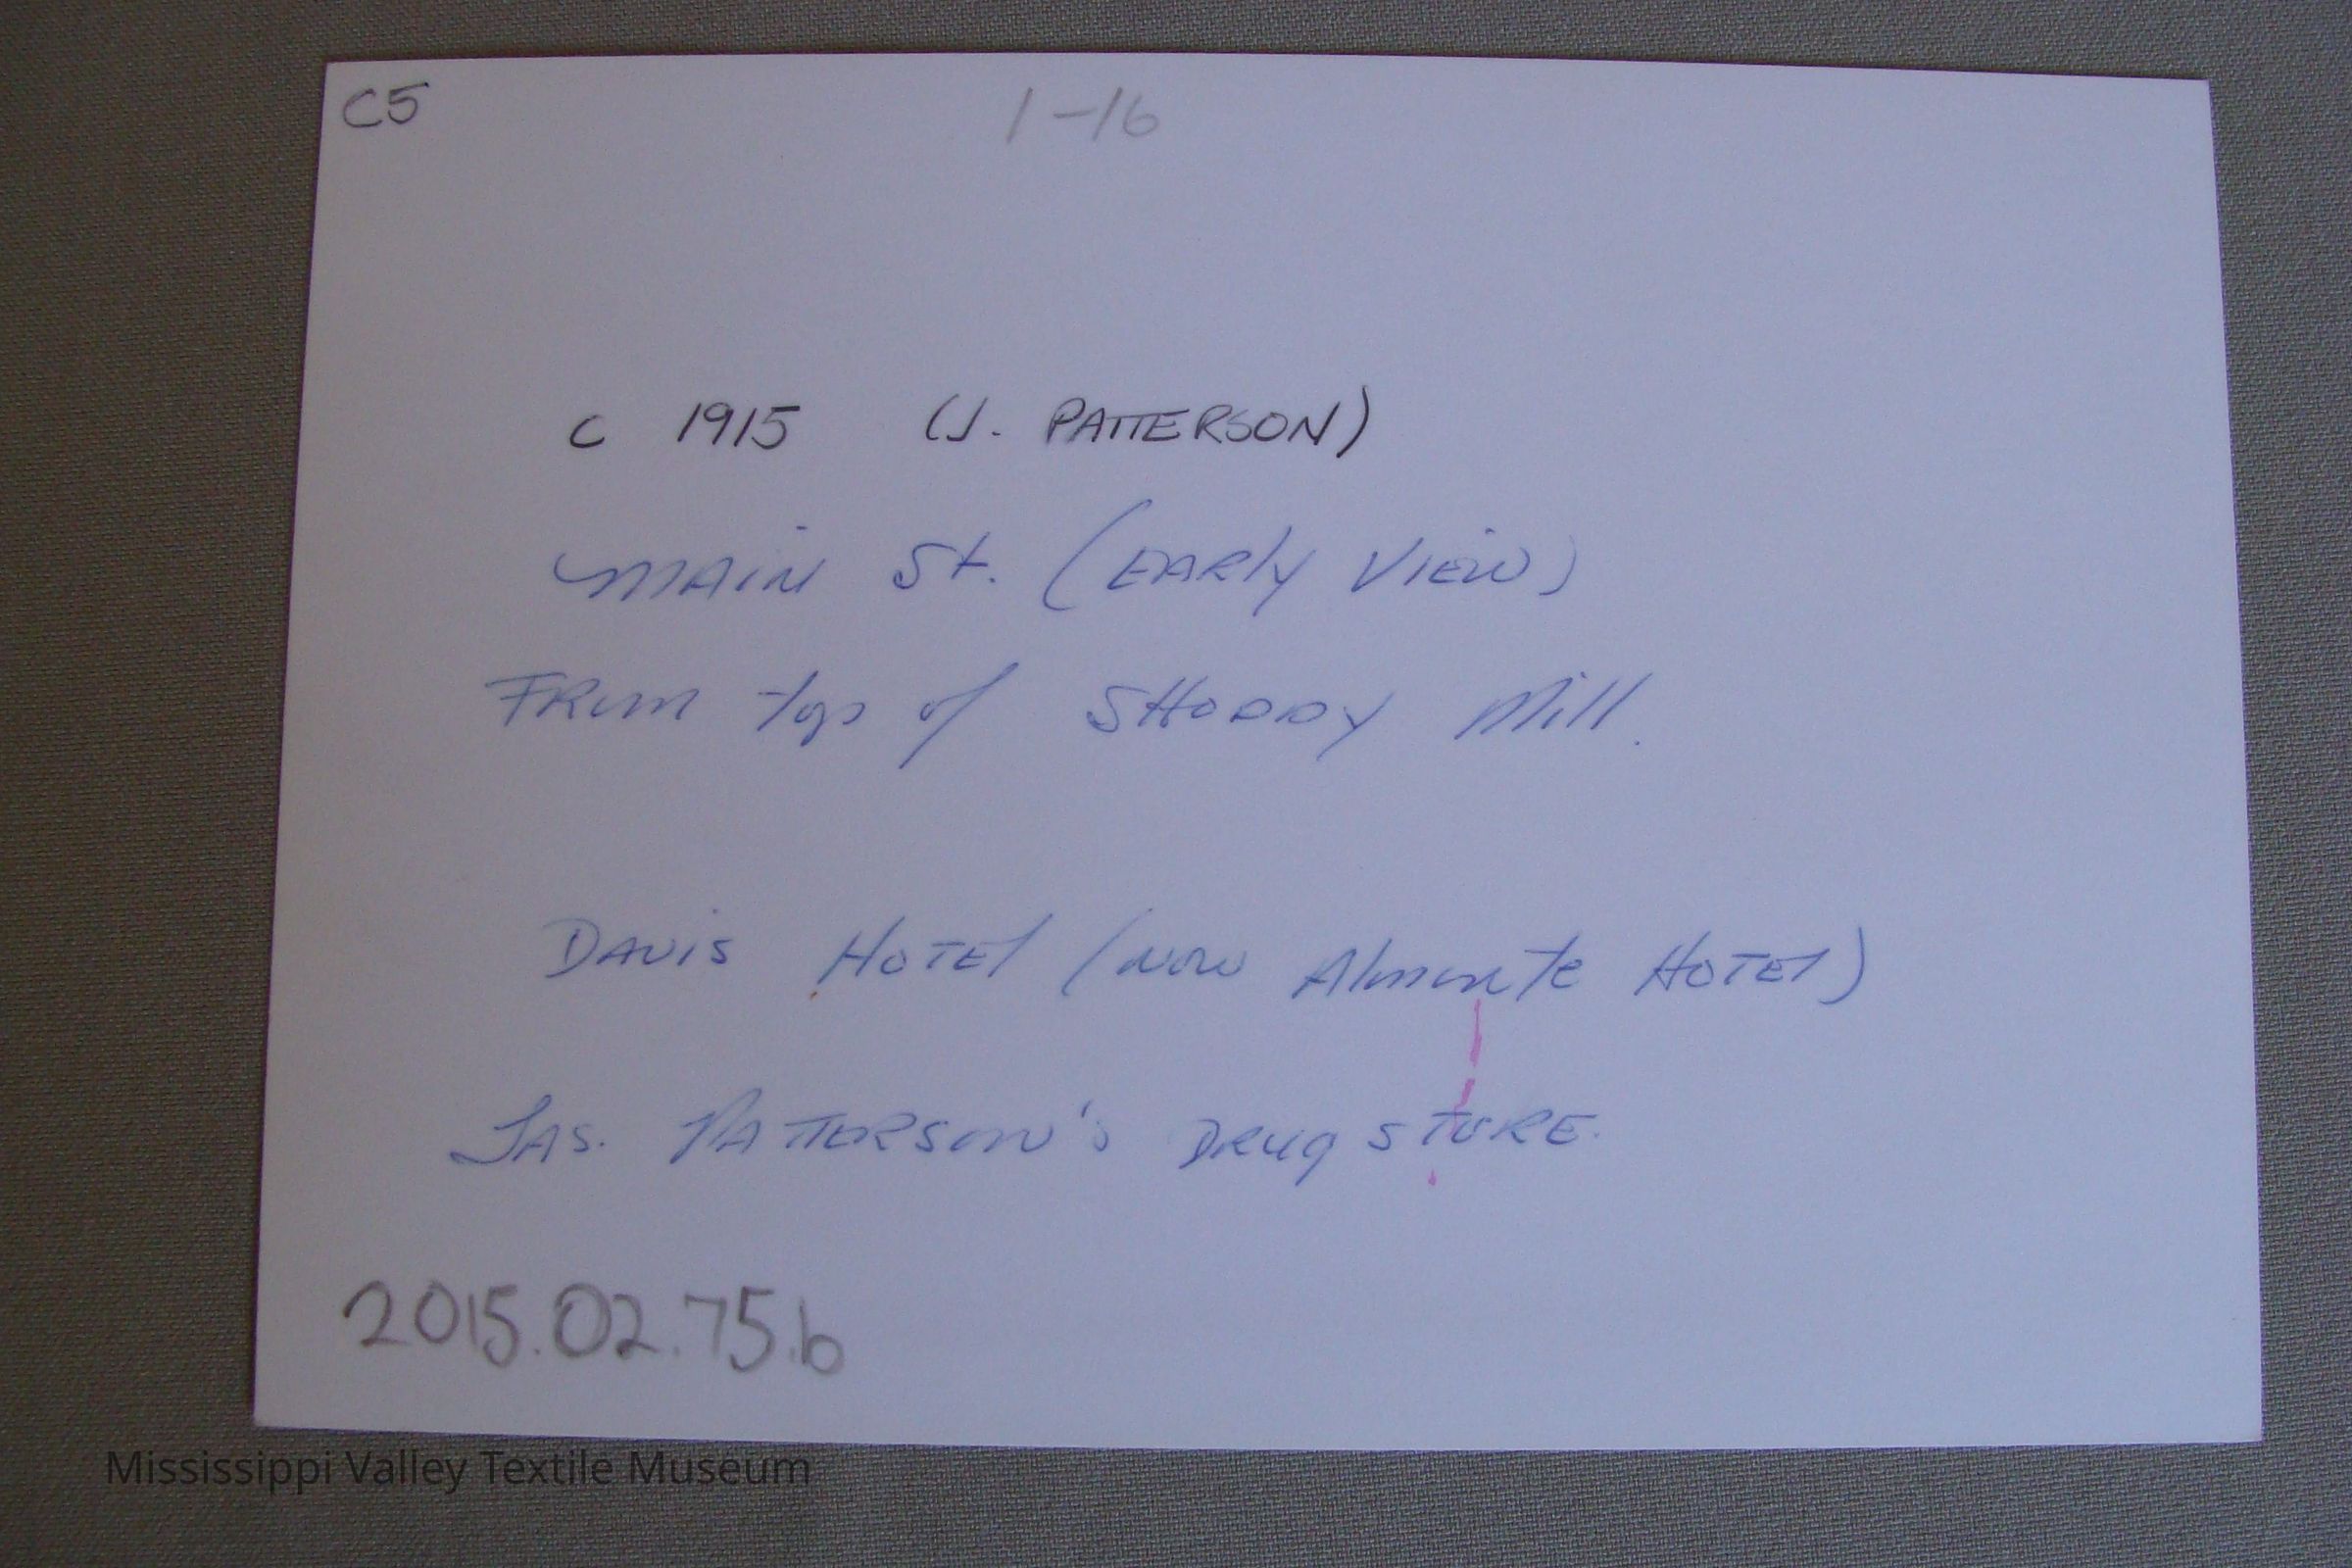 C5 1-16
c 1915 (J. PATTERSON)
MAIN St. (EARly VIEW)
FROM top of SHODDY Mill.
DAVIS HOTEl (NOW AlmonTe HOTEl)
JAS. PATTERSON'S DRUg STORE.
2015.02.75.b
Mississippi Valley Textile Museum